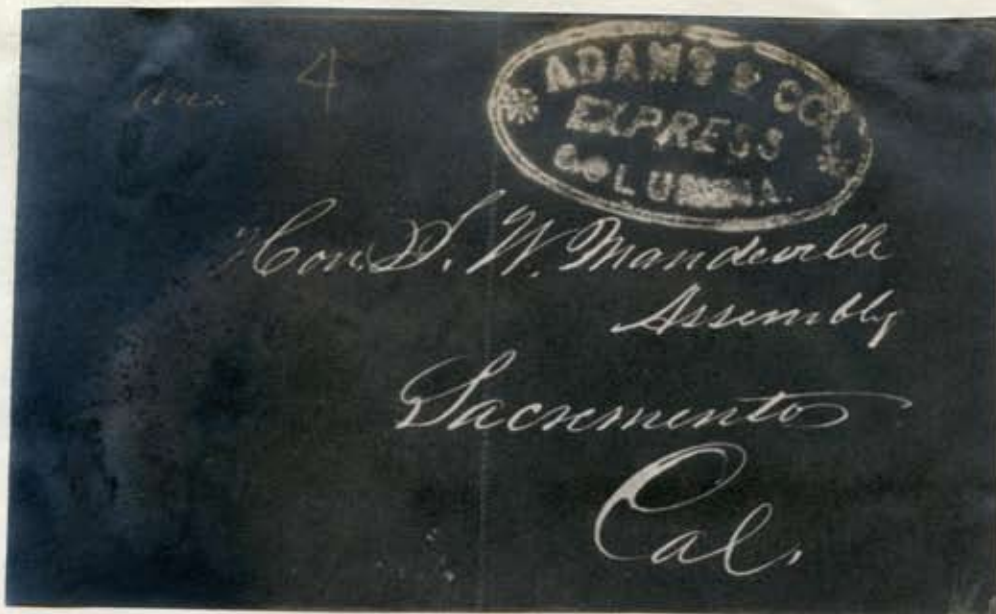 4
ADAMS & CO.
EXPRESS
COLUMBIA.
Hon. J. W. Mandeville
Assembly
Sacremento
Cal.